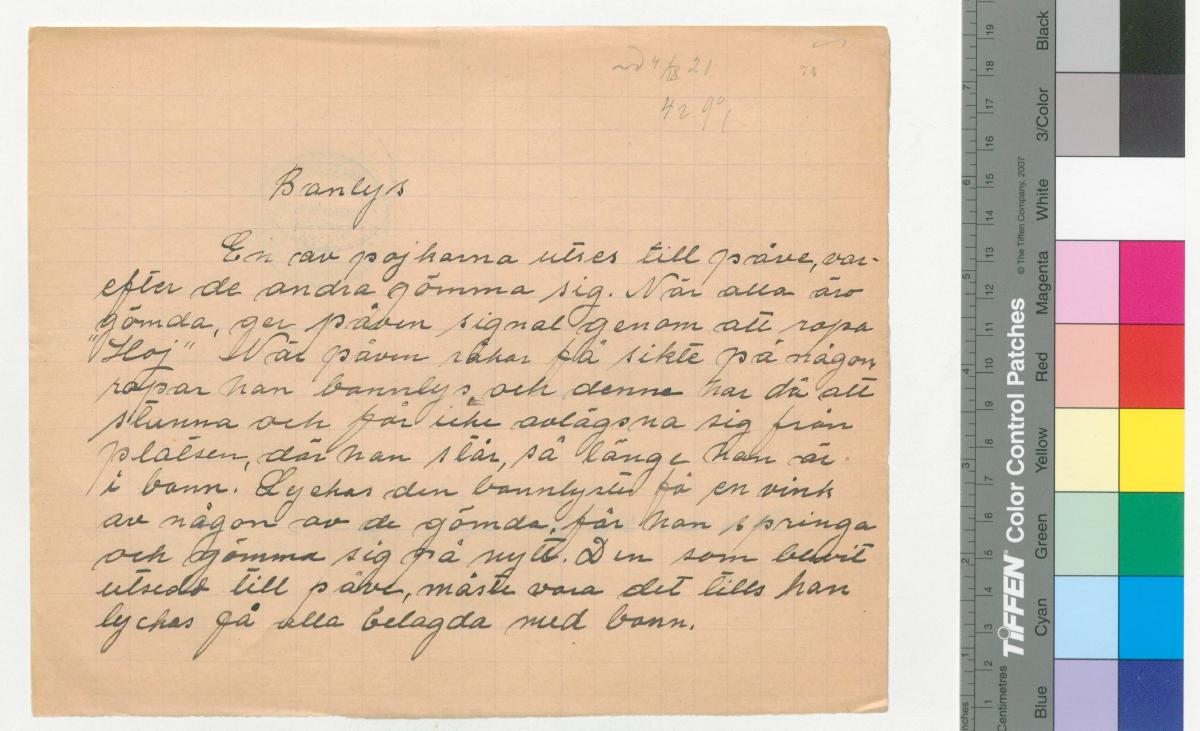 4/18 21
42 9%
Banlys
En av pojkarna utses till påve, var-
efter de andra gömma sig. När alla äro
gömda, ger påven signal genom att ropa
"Hoj" När påven råkar få sikte på någon,
ropar han bannlys, och denne har då att
stanna och får icke avlägsna sig från
platsen, där han står, så länge han är
i bann. Lyckas den bannlyste få en vink
av någon av de gömda, får han springa
och gömma sig på nytt. Den som blivit
utsedd till påve, måste vara det tills han
lyckas få alla belagda med bann.
inches
1
2
3
4
5
6
7
Centimetres
1
2
3
4
5
6
7
8
9
10
11
12
13
14
15
16
17
18
19
TIFFEN® Color Control Patches
© The Tiffen Company, 2007
Blue
Cyan
Green
Yellow
Red
Magenta
White
3/Color
Black